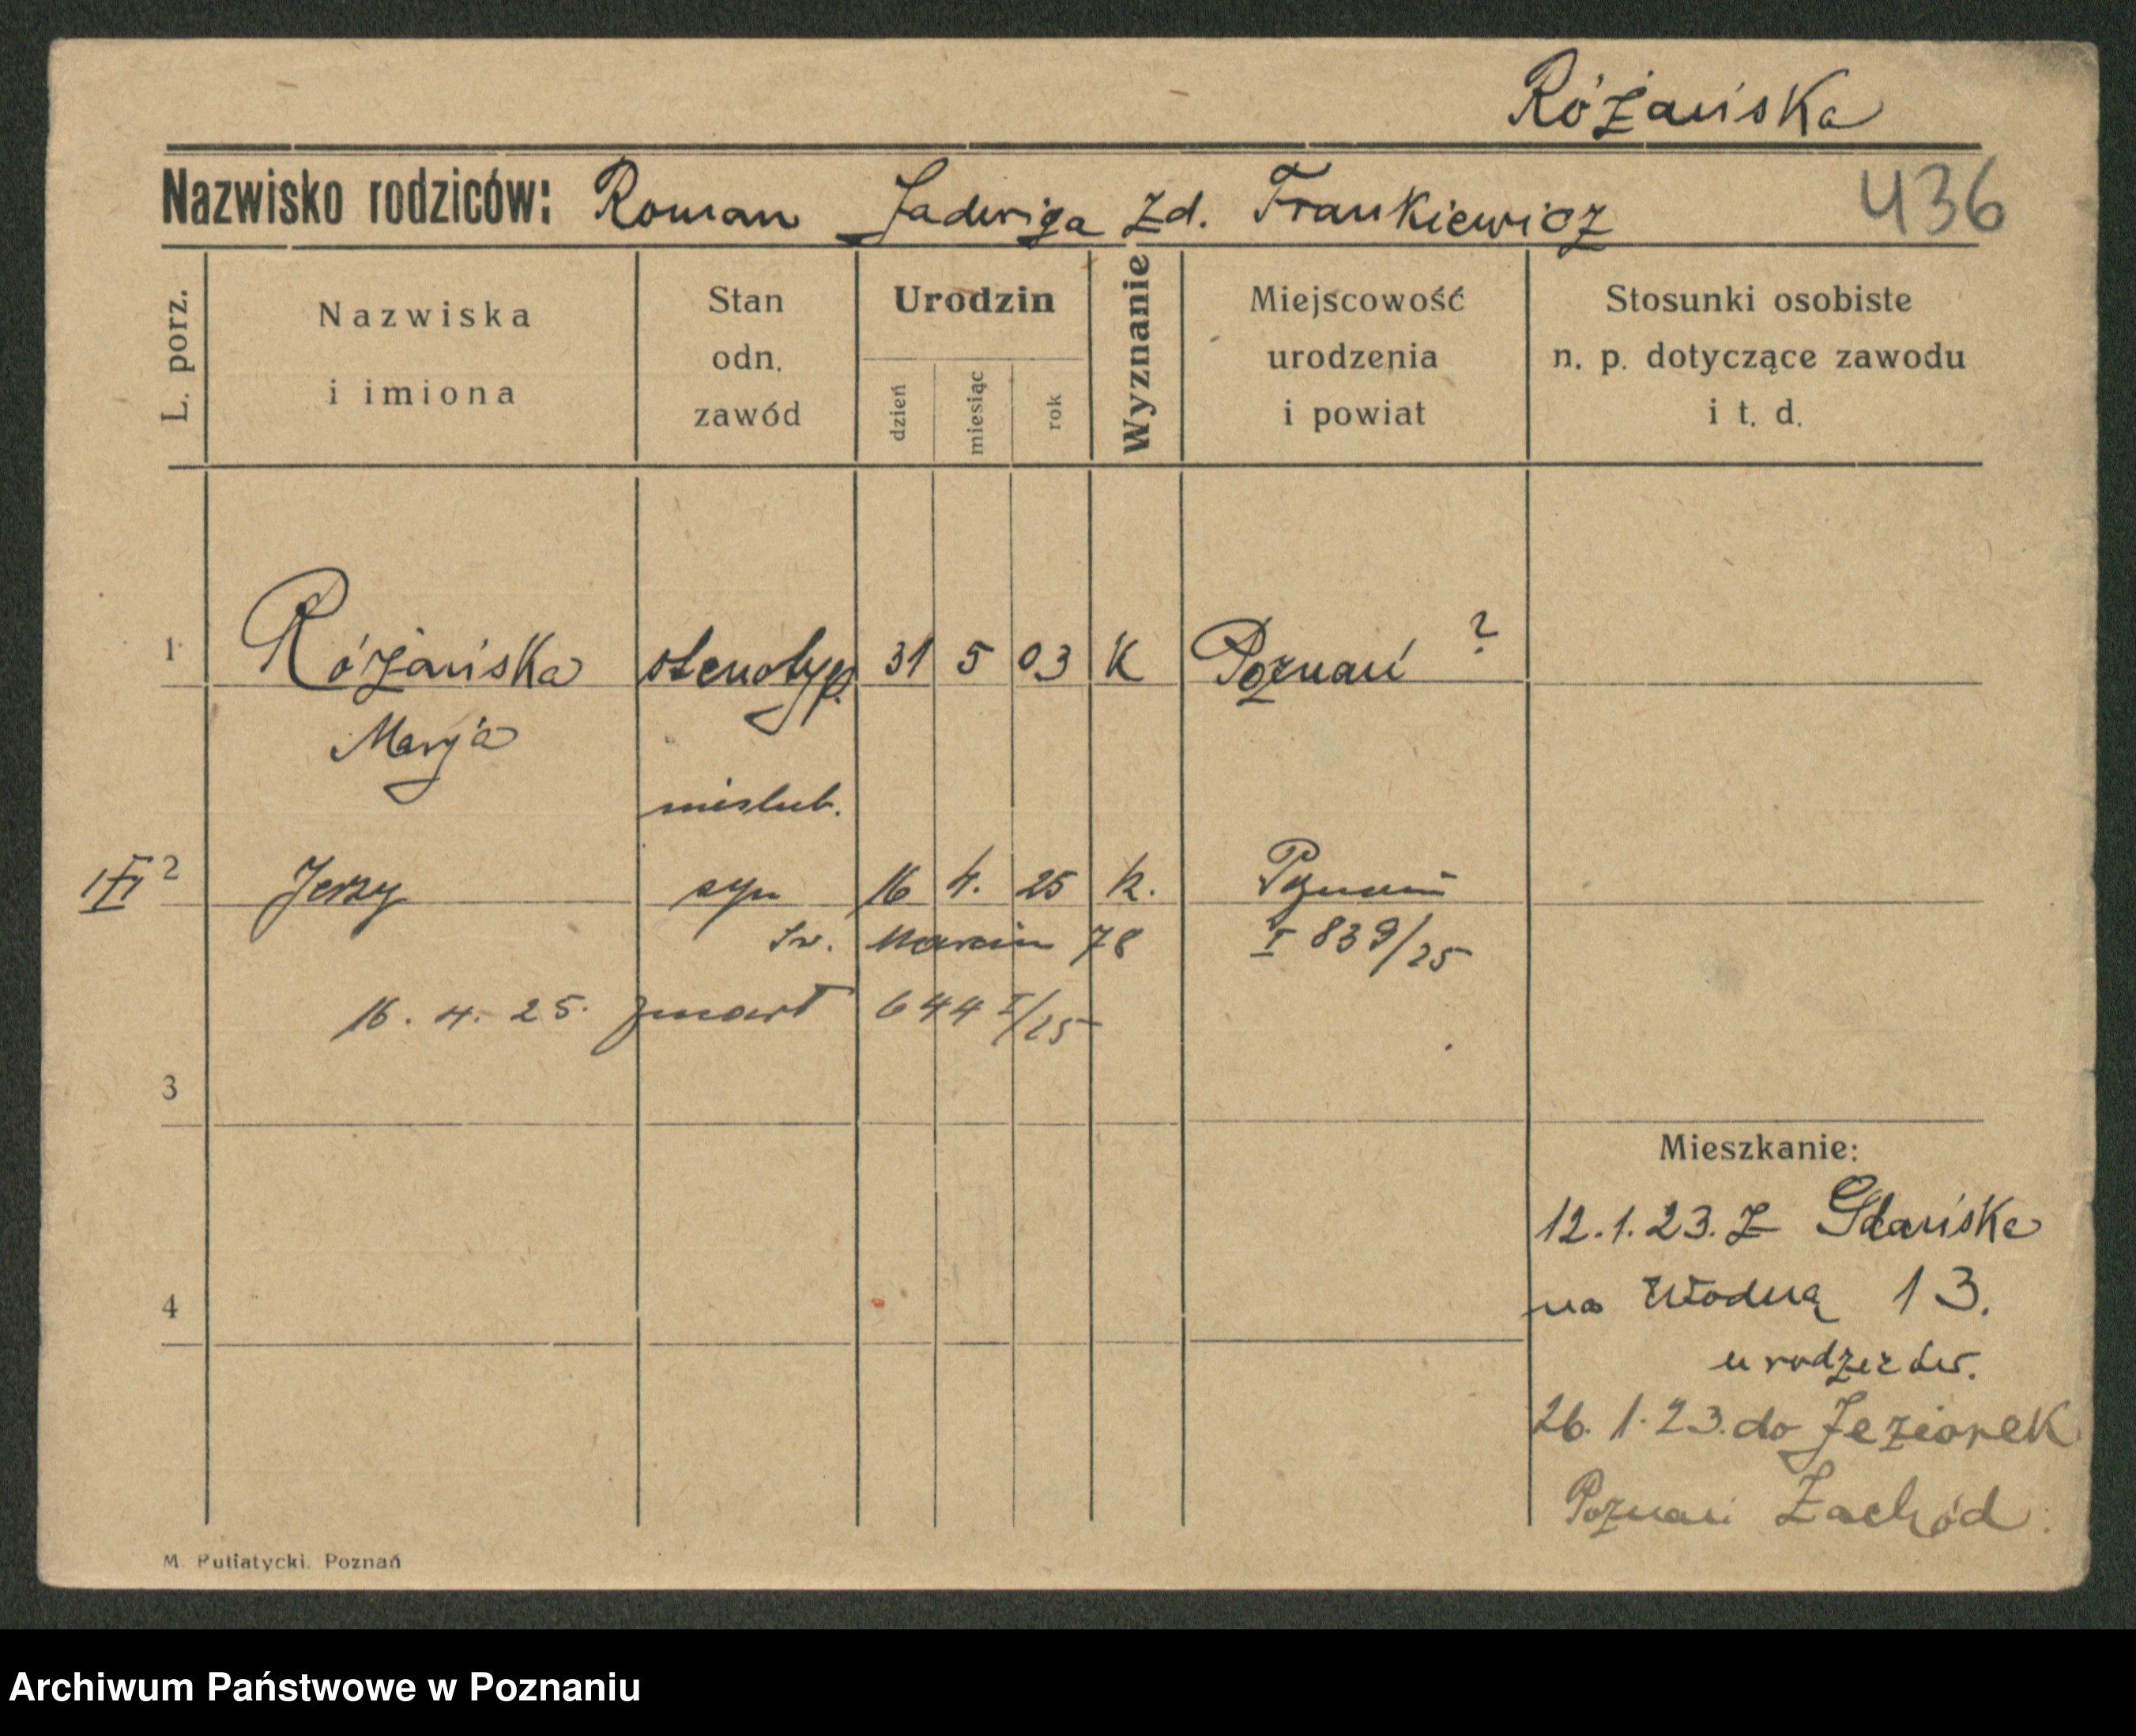 Różańska
Nazwisko rodziców: Roman Jadwiga zd. Frankiewicz 436
L. porz.
Nazwiska
i imiona
Stan
odn.
zawód
Urodzin
dzień
miesiąc
rok
Wyznanie
Miejscowość
urodzenia
i powiat
Stosunki osobiste
n. p. dotyczące zawodu
i t. d.
1 Różańska stenotyp. 31 5 03 K Poznań ?
Marja
nieślub.
2 Jerzy syn 16 4. 25 k. Poznań
Św. Marcin 78 I 839/25
16. 4. 25. zmarł 644 I/25
3
Mieszkanie:
12.1.23. z Gdańska
na Wodną 13.
4
u rodziców.
26. 1. 23. do Jeziorek
Poznań Zachód.
M. Putiatycki. Poznań
Archiwum Państwowe w Poznaniu